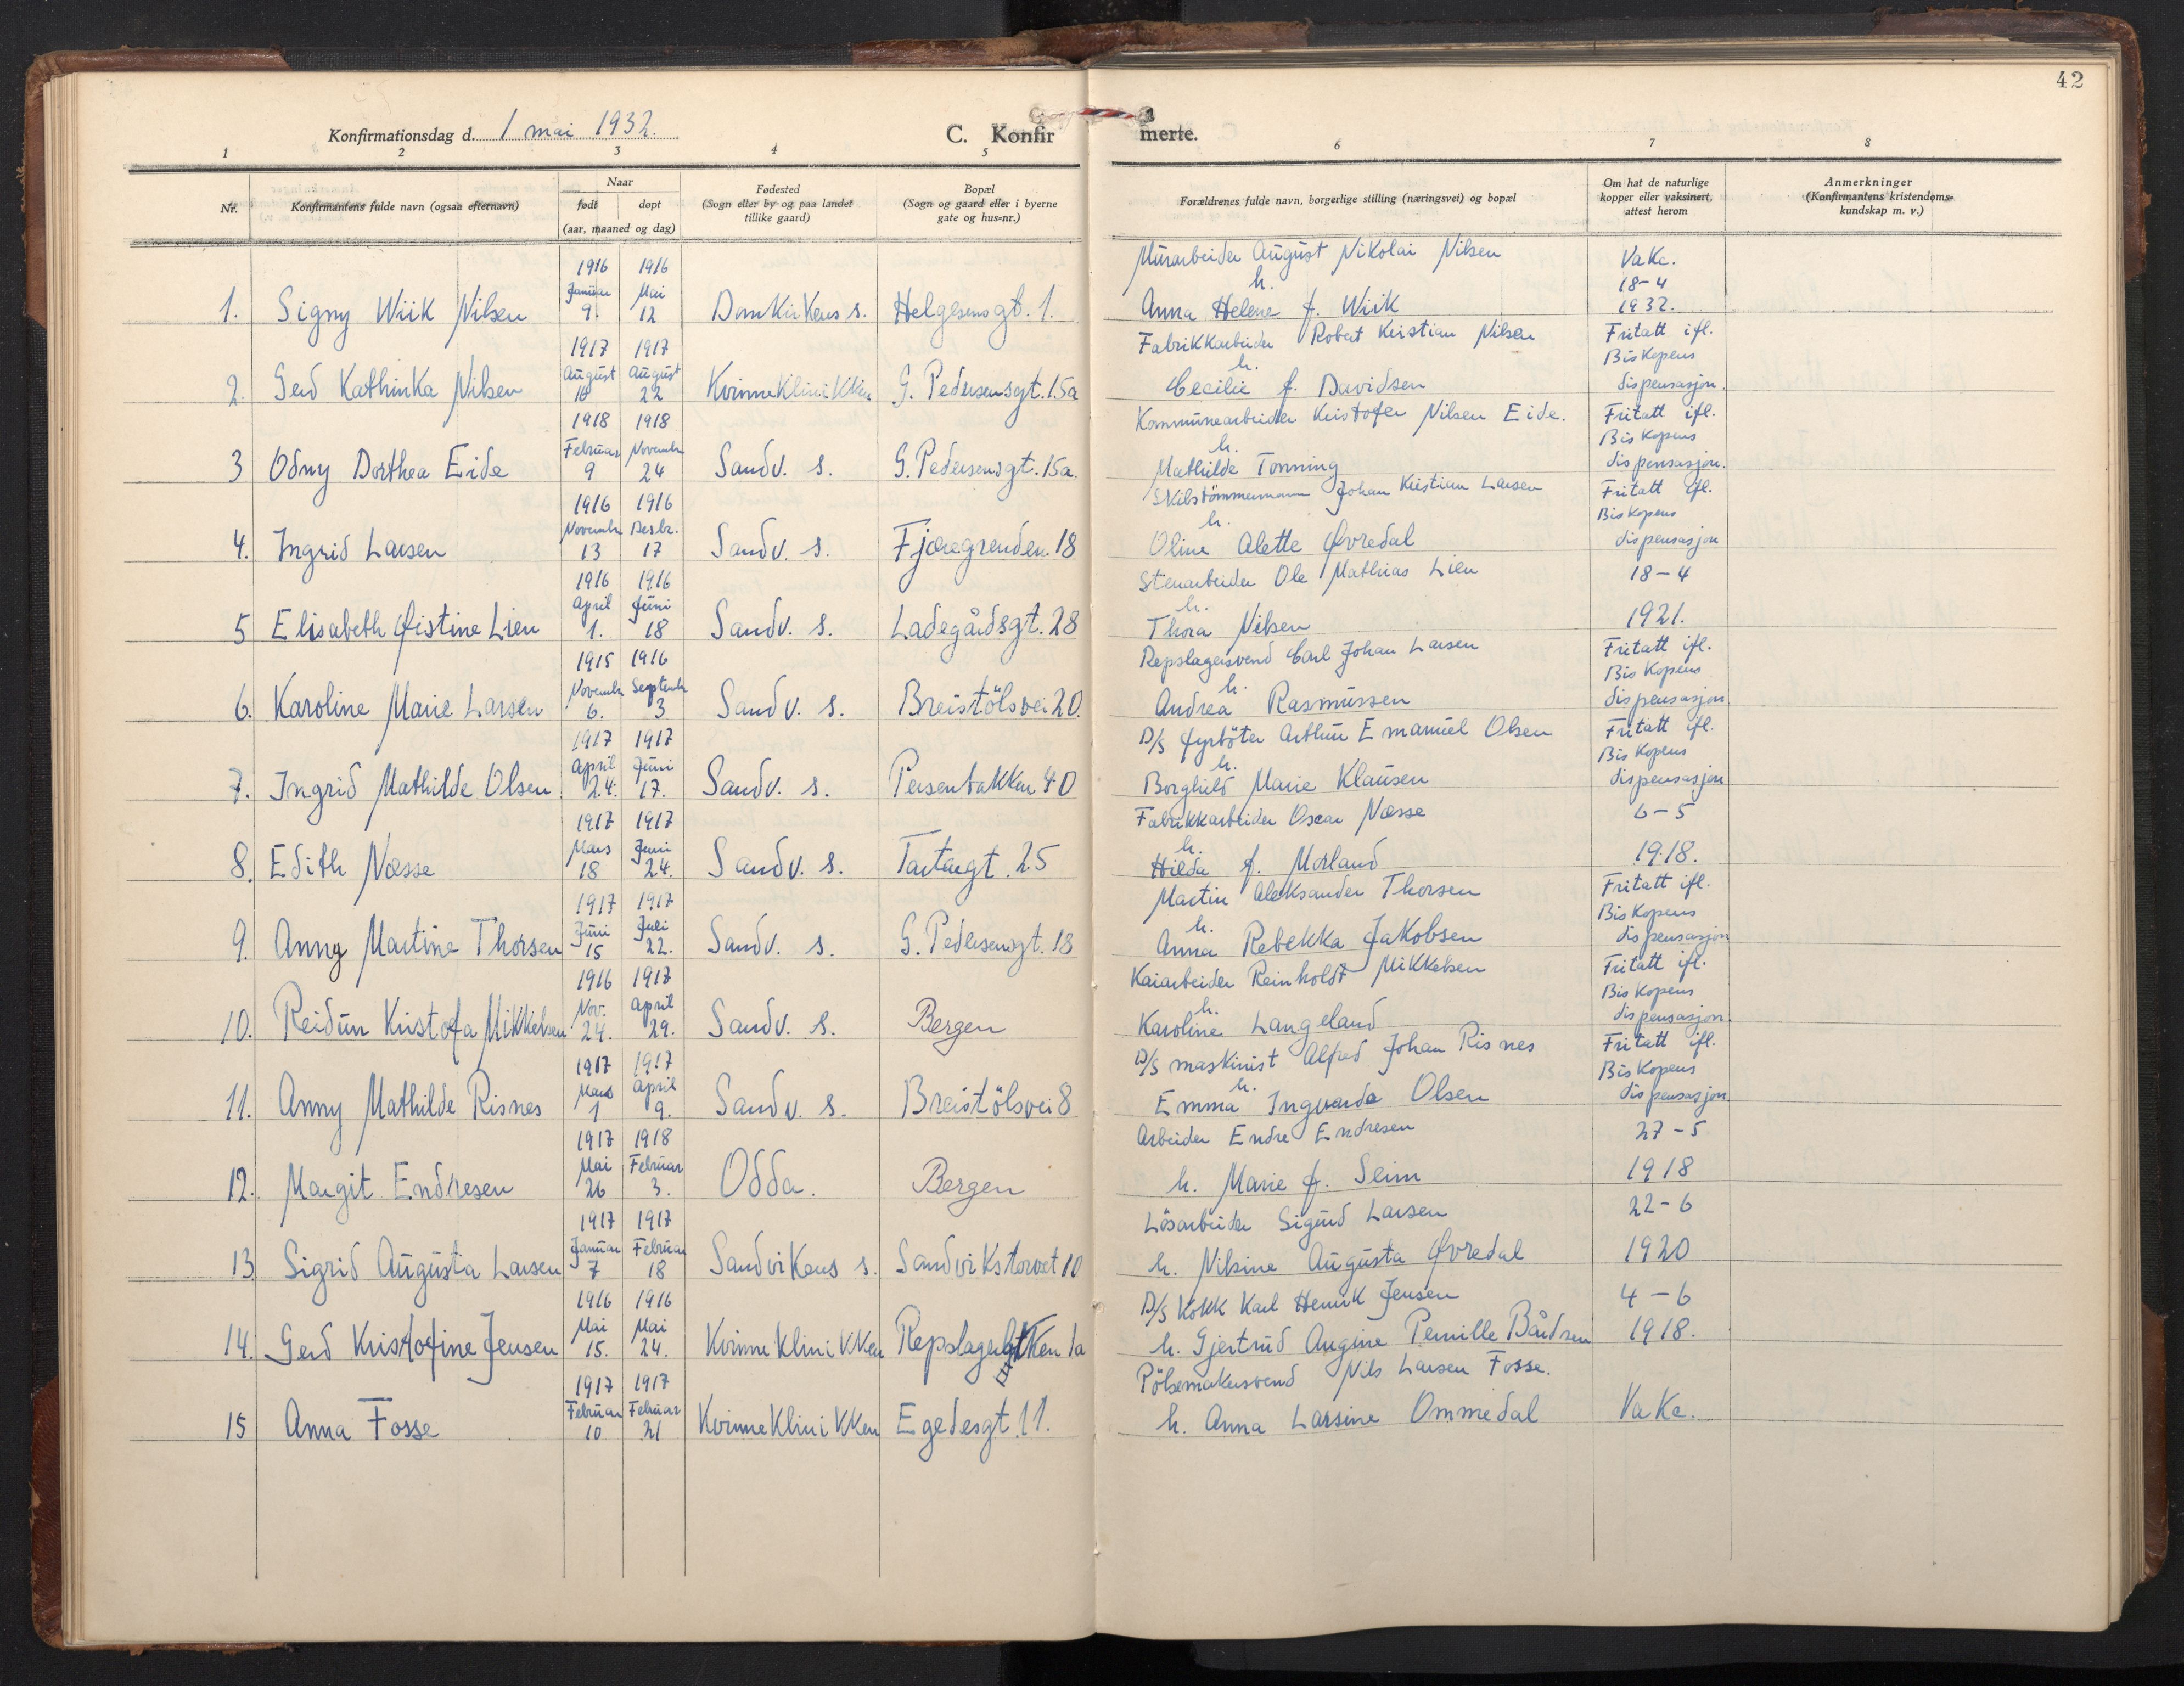 42
Konfirmationsdag d. 1 mai 1932.
C. Konfirmerte.
1 2 3 4 5 6 7 8
Nr.
Konfirmantens fulde navn (ogsaa efternavn)
Naar
født døpt
(aar, maaned og dag)
Fødested
(Sogn eller by og paa landet
tillike gaard)
Bopæl
(Sogn og gaard eller i byerne
gate og hus-nr.)
Forældrenes fulde navn, borgerlige stilling (næringsvei) og bopæl
Om hat de naturlige
kopper eller vaksinert,
attest herom
Anmerkninger
(Konfirmantens kristendoms-
kundskap m. v.)
1916 1916 Murarbeider August Nikolai Nilsen Vakc.
Januar Mai h. 18-4
1. Signy Wiik Nilsen 9. 12 Domkirkens s. Helgesensgt. 1. Anna Helene f. Wiik 1932.
1917 1917 Fabrikkarbeider Robert Kristian Nilsen Fritatt ifl.
August August h. Biskopens
2. Gerd Kathinka Nilsen 10 22 Kvinneklinikken G. Pedersensgt. 15a Cecilie f. Davidsen dispensasjon.
1918 1918 Kommunearbeider Kristofer Nilsen Eide. Fritatt ifl.
Februar November h. Biskopens
3 Odny Dorthea Eide 9 24 Sandv. s. G. Pedersensgt. 15a. Mathilde Tonning dispensasjon.
1916 1916 Skibstömmermann Johan Kristian Larsen Fritatt ifl.
November Desbr. h. Biskopens
4. Ingrid Larsen 13 17 Sandv. s. Fjæregrenden. 18 Oline Alette Øvredal dispensasjon
1916 1916 Stenarbeider Ole Mathias Lien 18-4
April Juni h.
5 Elisabeth Øistine Lien 1. 18 Sandv. s. Ladegårdsgt. 28 Thora Nilsen 1921.
1915 1916 Repslagersvend Carl Johan Larsen Fritatt ifl.
November Septembr h. Biskopens
6. Karoline Marie Larsen 6. 3 Sandv. s. Breistölsvei 20. Andrea Rasmussen dispensasjon
1917 1917 D/s fyrböter Arthur Emanuel Olsen Fritatt ifl.
April Juni h. Biskopens
7. Ingrid Mathilde Olsen 24. 17. Sandv. s. Persenbakken 40 Borghild Marie Klausen dispensasjon
1917 1917 Fabrikkarbeider Oscar Næsse 6-5
Mars Juni h.
8. Edith Næsse 18 24. Sandv. s. Tartargt. 25 Hilda f. Morland 1918.
1917 1917 Martin Aleksander Thorsen Fritatt ifl.
Juni Juli h. Biskopens
9. Anny Martine Thorsen 15 22. Sandv. s. G. Pedersensgt. 18 Anna Rebekka Jakobsen dispensasjon
1916 1917 Kaiarbeider Reinholdt Mikkelsen Fritatt ifl.
Nov. April h. Biskopens
10. Reidun Kristofa Mikkelsen 24. 29. Sandv. s. Bergen Karoline Langeland dispensasjon.
1917 1917 D/s maskinist Alfred Johan Risnes Fritatt ifl.
Mars April h. Biskopens
11. Anny Mathilde Risnes 1 9. Sandv. s. Breistölsvei 8 Emma Ingvarda Olsen dispensasjon
1917 1918 Arbeider Endre Endresen 27-5
Mai Februar
12. Margit Endresen 26 3. Odda. Bergen h. Marie f. Seim 1918
1917 1917 Lösarbeider Sigurd Larsen 22-6
Januar Februar
13 Sigrid Augusta Larsen 7 18 Sandvikens s. Sandvikstorvet 10 h. Nilsine Augusta Øvredal 1920
1916 1916 D/s Kokk Karl Henrik Jensen 4-6
Mai Mai
14. Gerd Kristofine Jensen 15. 24. Kvinneklinikken 1a h. Gjertrud Augine Pernille Bårdsen 1918.
1917 1917 Pölsemakersvend Nils Larsen Fosse.
Februar Februar
15 Anna Fosse 10 21 Kvinneklinikken Egedesgt. 11. h. Anna Larsine Ommedal Vakc.